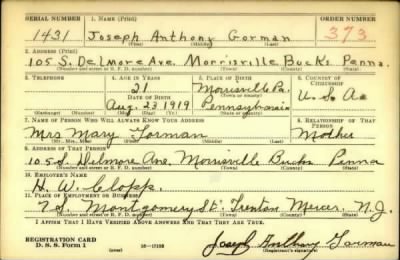 SERIAL NUMBER 1. NAME (Print) ORDER NUMBER
1431 Joseph Anthony Gorman 373
(First) (Middle) (Last)
2. ADDRESS (Print)
105 S. Delmore Ave. Morrisville Bucks Penna.
(Number and street or R. F. D. number) (Town) (County) (State)
3. TELEPHONE 4. AGE IN YEARS 5. PLACE OF BIRTH 6. COUNTRY OF CITIZENSHIP
21 Morrisville Pa.
DATE OF BIRTH
Aug. 23 1919 Pennsylvania U. S. A.
(Mo.) (Day) (Yr.) (State or country)
7. NAME OF PERSON WHO WILL ALWAYS KNOW YOUR ADDRESS 8. RELATIONSHIP OF THAT PERSON
Mrs Mary Gorman Mother
(Mr., Mrs., Miss) (First) (Middle) (Last)
9. ADDRESS OF THAT PERSON
105 S. Delmore Ave. Morrisville Bucks Penna
(Number and street or R. F. D. number) (Town) (County) (State)
10. EMPLOYER'S NAME
H. W. Clopp.
11. PLACE OF EMPLOYMENT OR BUSINESS
7 S. Montgomery St. Trenton Mercer, N. J.
(Number and street or R. F. D. number) (Town) (County) (State)
I AFFIRM THAT I HAVE VERIFIED ABOVE ANSWERS AND THAT THEY ARE TRUE.
REGISTRATION CARD
D. S. S. Form 1 (over) 16-17105 Joseph Anthony Gorman
(Registrant's signature)